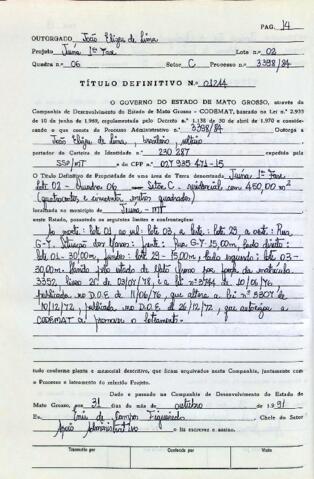 PAG. 14
OUTORGADO João Elizeu de Lima
Projeto Juina 1ª Fase Lote n.o 02
Quadra n.o 06 Setor C Processo n.o 3398/84
TÍTULO DEFINITIVO N.o 01244
O GOVERNO DO ESTADO DE MATO GROSSO, através da
Companhia de Desenvolvimento do Estado de Mato Grosso — CODEMAT, baseado na Lei n.o 2.935
de 10 de junho de 1969, regulamentada pelo Decreto n.o 1.138 de 30 de abril de 1970 e considerando
o que consta do Processo Administrativo n.o 3398/84 Outorga a
João Elizeu de Lima, brasileiro,
portador da Carteira de Identidade n.o 230 287 expedida pela
SSP/MT e do CPF n.o 027 935 471-15
O Título Definitivo de Propriedade de uma área de Terra denominada Juina 1ª Fase
Lote 02 - Quadra 06 Setor C - residencial com 450,00 m²
(quatrocentos e cinquenta metros quadrados)
localizada no município de Juina - MT
neste Estado, passando os seguintes limites e confrontações:
Ao norte: lote 01, ao sul: lote 03, a leste: lote 29, a oeste: Rua
G-7. Situação dos Marcos: frente: Rua G-7 15,00m, lado direito:
lote 01 - 30,00m, fundos: lote 29 - 15,00m, lado esquerdo: lote 03 -
30,00m. pelo estado de Mato Grosso por força da matrícula
3352 livro 2 de 03/07/78, e a lei nº 3744 de 10/06/76
publicada no D.O.E de 11/06/76, que altera a lei nº 3307 de
10/12/72, publicada no D.O.E de 26/12/72, que autoriza a
CODEMAT a promover o loteamento.
tudo conforme planta e memorial descritivo, que ficam arquivados nesta Companhia, juntamente com
o Processo e loteamento do referido Projeto.
Dado e passado na Companhia de Desenvolvimento do Estado de
Mato Grosso, aos 31 dias do mês de outubro de 1991
Eu, de Campos Figueiredo Chefe do Setor
Apoio Administrativo o fiz escrever e assino.
Transcrito por Conferido por Visto